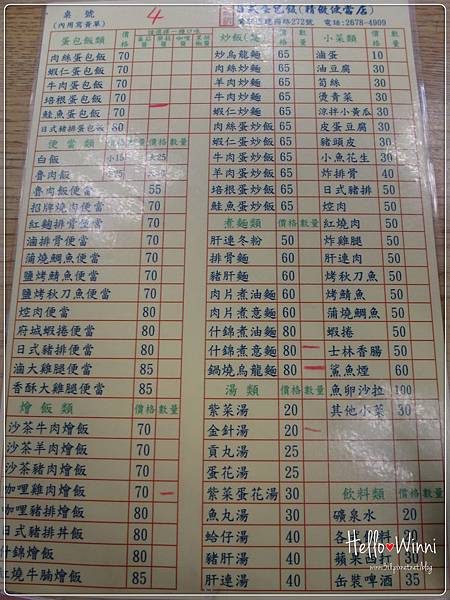 桌號
4
(內用寫黃單)
蛋包飯(精緻便當店)
272號 電話:2678-4909
蛋包飯類 價格
肉絲蛋包飯 70
蝦仁蛋包飯 70
牛肉蛋包飯 70
培根蛋包飯 70
鮭魚蛋包飯 70
日式豬排蛋包飯 80
便當類 價格 數量
白飯 小15 大25
魯肉飯
魯肉飯便當 55
招牌燒肉便當 70
紅麴排骨便當 70
滷排骨便當 70
蒲燒鯛魚便當 70
鹽烤鯖魚便當 70
鹽烤秋刀魚便當 70
焢肉便當 80
府城蝦捲便當 80
日式豬排便當 80
滷大雞腿便當 85
香酥大雞腿便當 85
燴飯類 價格 數量
沙茶牛肉燴飯 70
沙茶羊肉燴飯 70
沙茶豬肉燴飯 70
咖哩雞肉燴飯 70
咖哩豬排燴飯 80
日式豬排丼飯 80
什錦燴飯 80
紅燒牛腩燴飯 85
炒烏龍麵 65
肉絲炒麵 65
羊肉炒麵 65
牛肉炒麵 65
蝦仁炒麵 65
肉絲蛋炒飯 65
蝦仁蛋炒飯 65
牛肉蛋炒飯 65
羊肉蛋炒飯 65
培根蛋炒飯 65
鮭魚蛋炒飯 65
煮麵類 價格 數量
肝連冬粉 50
排骨麵 60
豬肝麵 60
肉片煮油麵 60
肉片煮意麵 60
什錦煮油麵 80
什錦煮意麵 80
鍋燒烏龍麵 80
湯類 價格 數量
紫菜湯 20
金針湯 20
貢丸湯 25
蛋花湯 25
紫菜蛋花湯 30
魚丸湯 30
蛤仔湯 40
豬肝湯 40
肝連湯 40
小菜類 價格 數量
滷蛋 10
油豆腐 30
筍絲 30
燙青菜 30
涼拌小黃瓜 30
皮蛋豆腐 30
豬頭皮 30
小魚花生 30
炸排骨 40
日式豬排 50
焢肉 50
紅燒肉 50
炸雞腿 50
肝連肉 50
烤秋刀魚 50
烤鯖魚 50
蒲燒鯛魚 50
蝦捲 50
士林香腸 50
鯊魚煙 60
魚卵沙拉 100
其他小菜 30
飲料類 價格 數量
礦泉水 20
蘋果西打 30
缶裝啤酒 35
Hello♥Winni